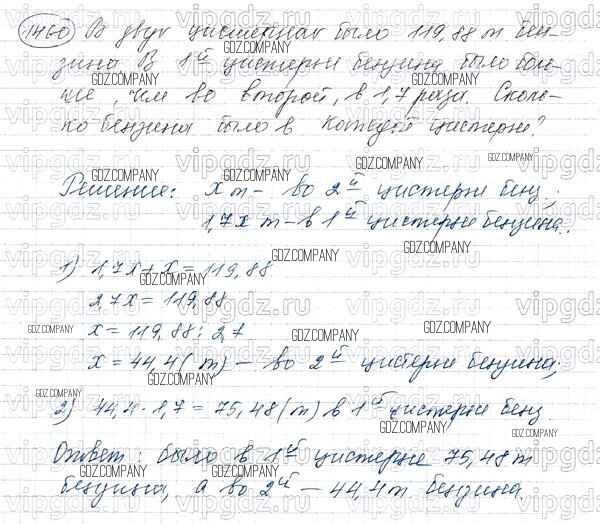 1460 В двух цистернах было 119,88 т бен-
зина В 1й цистерне бензина было боль-
ше, чем во второй, в 1,7 раза. Сколь-
ко бензина было в каждой цистерне?
Решение: х т – во 2й цистерне бенз.;
1,7х т – в 1й цистерне бензина.
1) 1,7х + х = 119,88
2,7х = 119,88
х = 119,88 : 2,7
х = 44,4 (т) – во 2й цистерне бензина;
2) 44,4 · 1,7 = 75,48 (т) в 1й цистерне бенз.
Ответ: было в 1й цистерне 75,48 т
бензина, а во 2й – 44,4 т бензина.